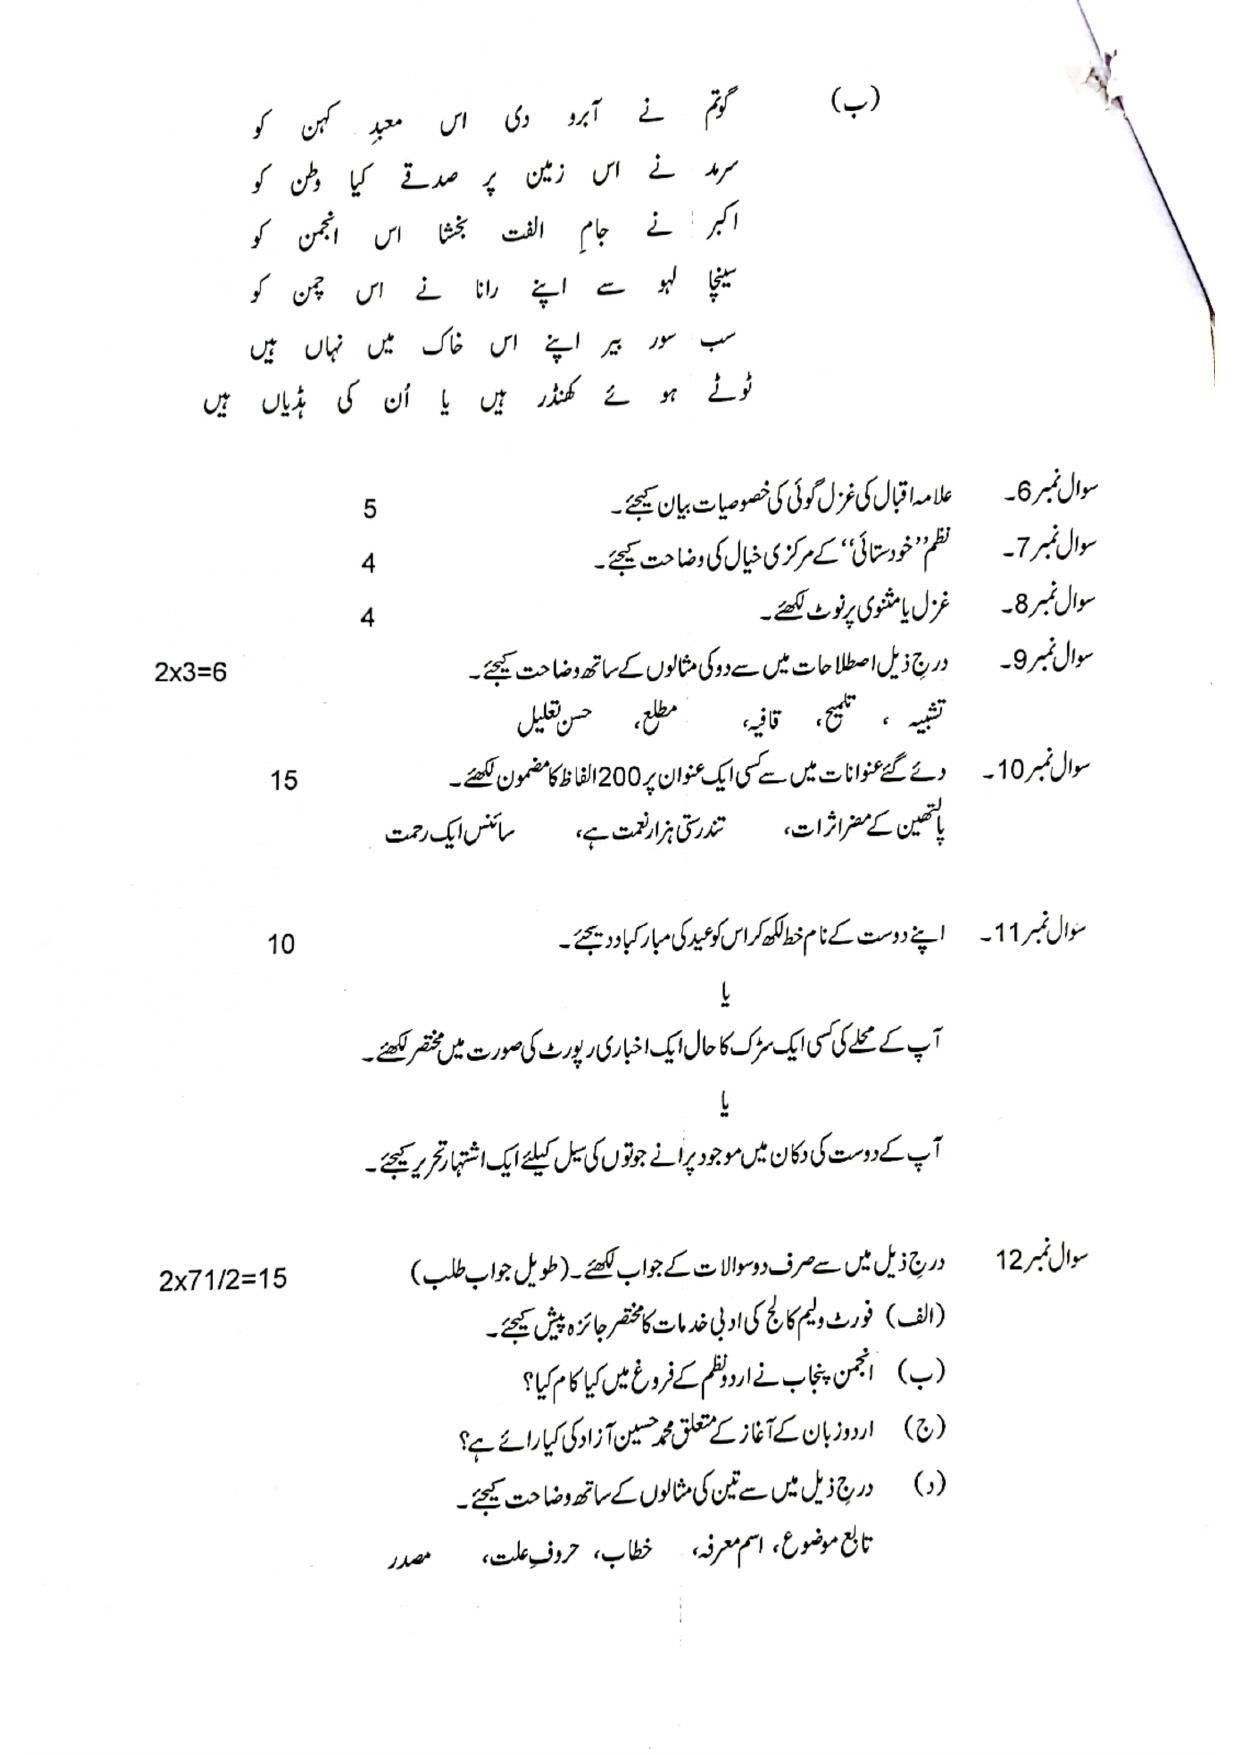 (ب) گوتم نے آبرو دی اس معبدِ کہن کو
سرمد نے اس زمین پر صدقے کیا وطن کو
اکبر نے جامِ الفت بخشا اس انجمن کو
سینچا لہو سے اپنے رانا نے اس چمن کو
سب سور بیر اپنے اس خاک میں نہاں ہیں
ٹوٹے ہوئے کھنڈر ہیں یا اُن کی ہڈیاں ہیں
سوال نمبر 6۔ علامہ اقبال کی غزل گوئی کی خصوصیات بیان کیجئے۔ 5
سوال نمبر 7۔ نظم ’’خودستائی‘‘ کے مرکزی خیال کی وضاحت کیجئے۔ 4
سوال نمبر 8۔ غزل یا مثنوی پر نوٹ لکھئے۔ 4
سوال نمبر 9۔ درجِ ذیل اصطلاحات میں سے دو کی مثالوں کے ساتھ وضاحت کیجئے۔ 2x3=6
تشبیہ ، تلمیح، قافیہ، مطلع، حسن تعلیل
سوال نمبر 10۔ دئے گئے عنوانات میں سے کسی ایک عنوان پر 200 الفاظ کا مضمون لکھئے۔ 15
پالتھین کے مضر اثرات، تندرستی ہزار نعمت ہے، سائنس ایک رحمت
سوال نمبر 11۔ اپنے دوست کے نام خط لکھ کر اس کو عید کی مبارکباد دیجئے۔ 10
یا
آپ کے محلے کی کسی ایک سڑک کا حال ایک اخباری رپورٹ کی صورت میں مختصر لکھئے۔
یا
آپ کے دوست کی دکان میں موجود پرانے جوتوں کی سیل کیلئے ایک اشتہار تحریر کیجئے۔
سوال نمبر 12 درجِ ذیل میں سے صرف دو سوالات کے جواب لکھئے۔ (طویل جواب طلب) 2x71/2=15
(الف) فورٹ ولیم کالج کی ادبی خدمات کا مختصر جائزہ پیش کیجئے۔
(ب) انجمن پنجاب نے اردو نظم کے فروغ میں کیا کام کیا؟
(ج) اردو زبان کے آغاز کے متعلق محمد حسین آزاد کی کیا رائے ہے؟
(د) درجِ ذیل میں سے تین کی مثالوں کے ساتھ وضاحت کیجئے۔
تابع موضوع، اسم معرفہ، خطاب، حروفِ علت، مصدر